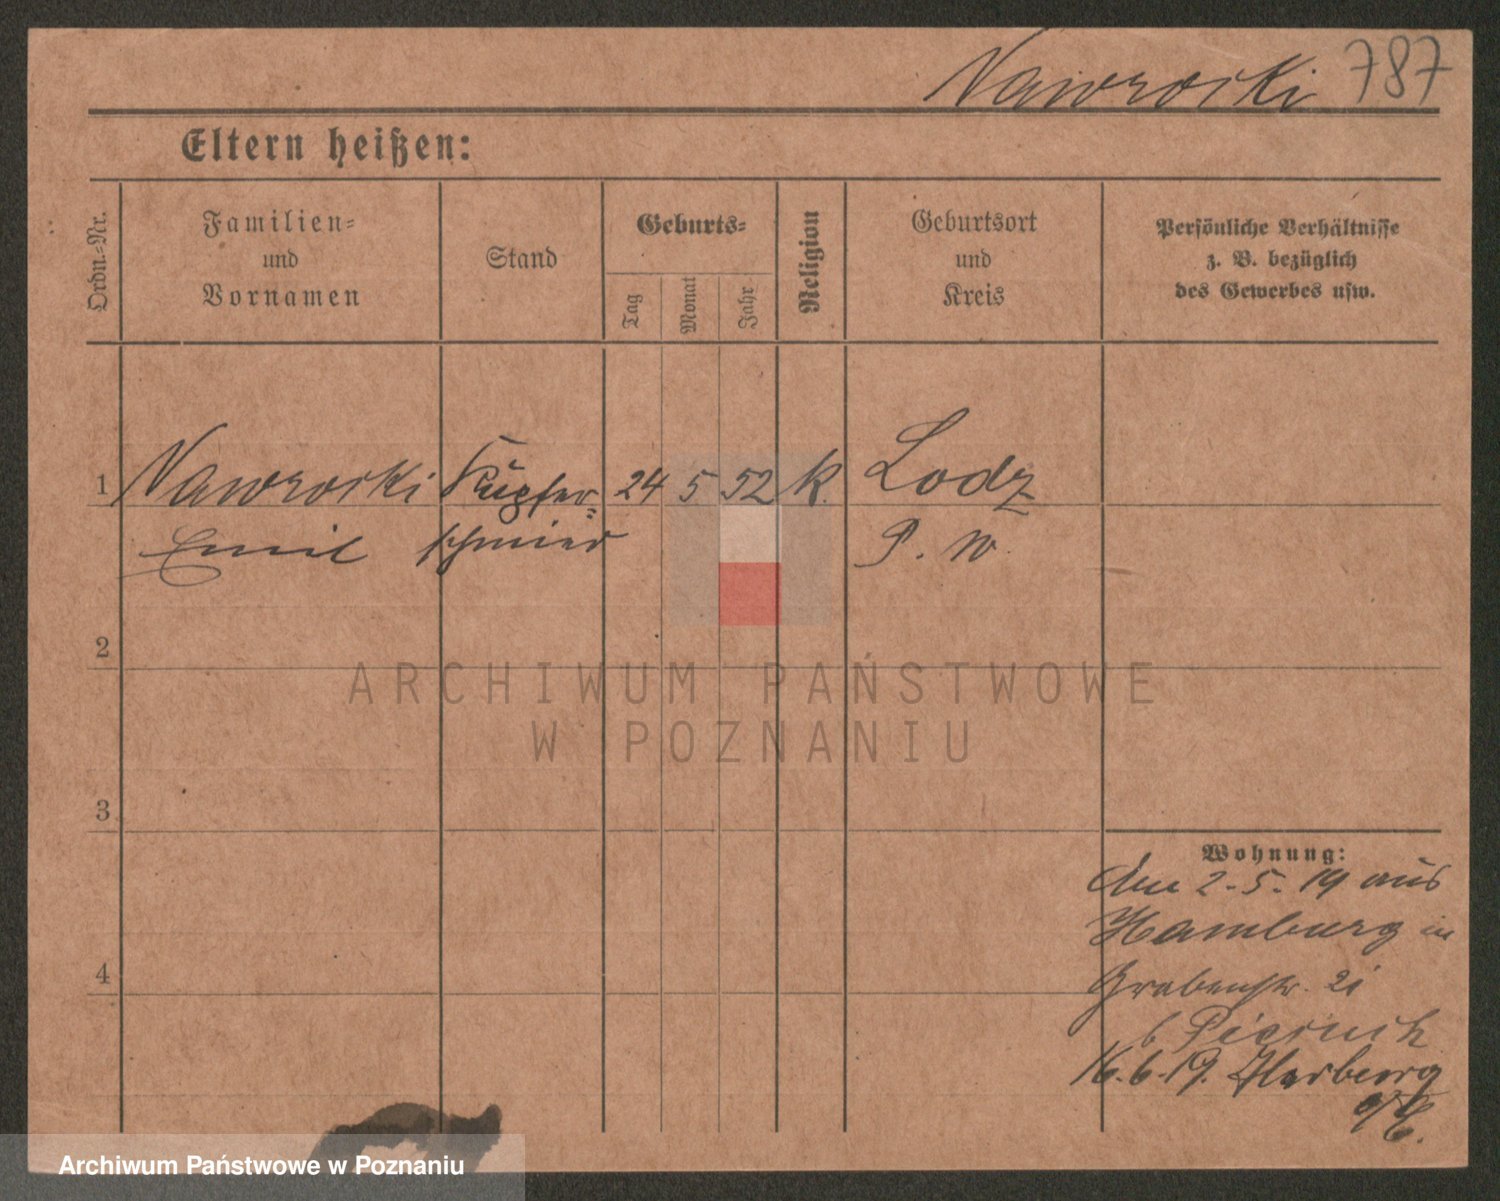 Nawrocki 787
Eltern heißen:
Ordn.-Nr.
Familien-
und
Vornamen
Stand
Geburts-
Tag
Monat
Jahr
Religion
Geburtsort
und
Kreis
Persönliche Verhältnisse
z. B. bezüglich
des Gewerbes usw.
1 Nawrocki Kupfer- 24 5 52 k. Lodz
Emil schmied P. W.
2
3
4
Wohnung:
den 2.5.19 aus
Hamburg in
Grabenstr. 21
b
16.6.19.
ARCHIWUM PAŃSTWOWE
W POZNANIU
Archiwum Państwowe w Poznaniu